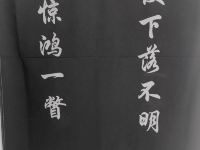 下落不明
惊鸿一瞥